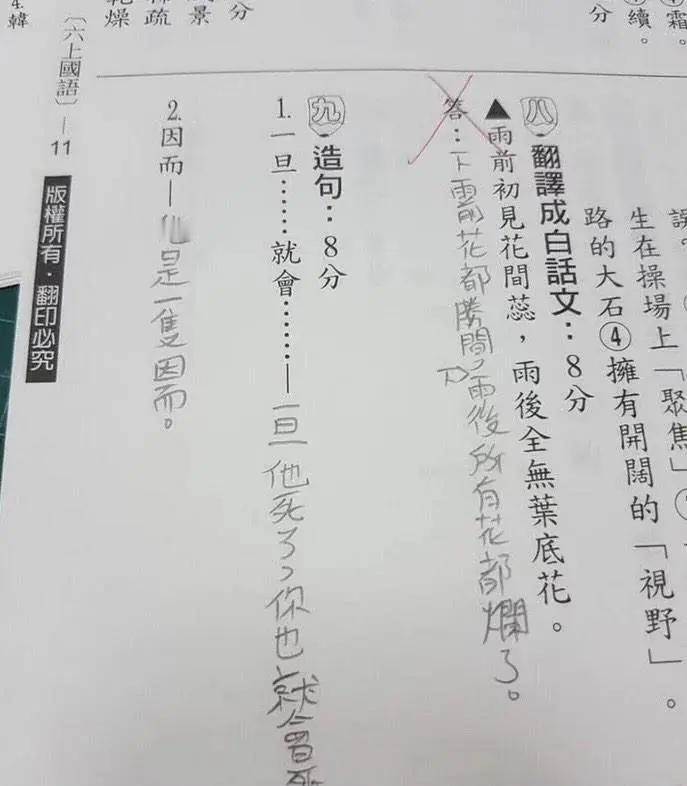 霜。
續。
分
生在操場上「聚焦」
路的大石④擁有開闊的「視野」。
八、翻譯成白話文：8分
▲雨前初見花間蕊，雨後全無葉底花。
答：下雨前花都勝間，下雨後所有花都爛了。
九、造句：8分
1.一旦……就會……—一旦他死了，你也就會死
2.因而—他是一隻因而。
分
景
疏
乾燥
4.韓
〔六上國語〕—11
版權所有‧翻印必究